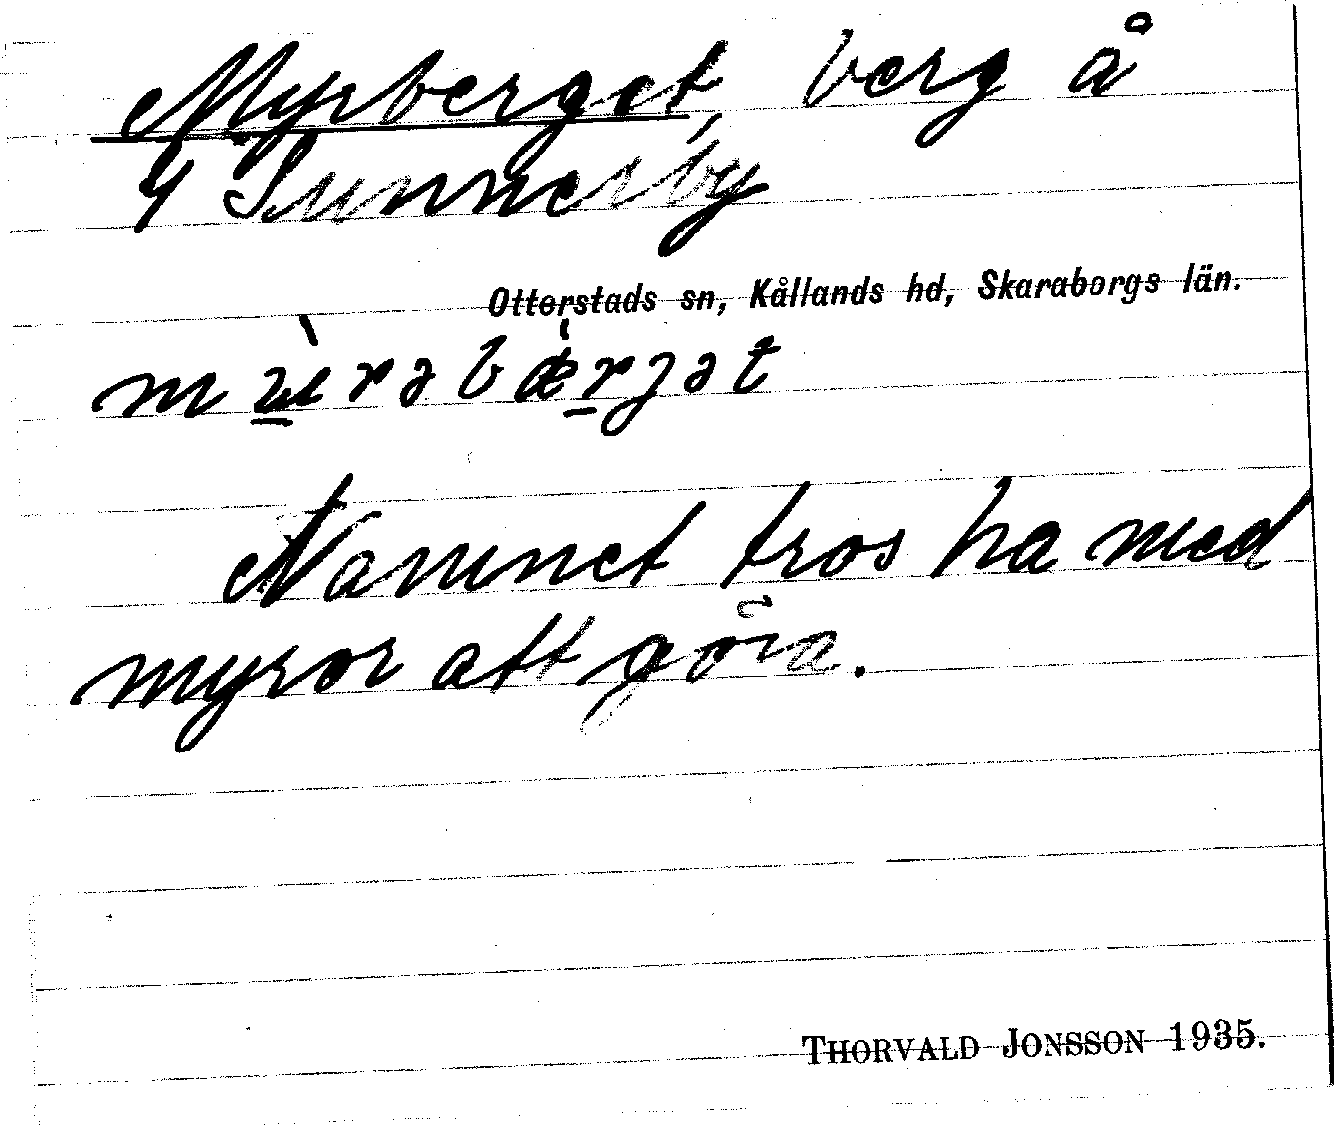 Myrberget, berg å
4 Sunnerby
Otterstads sn, Kållands hd, Skaraborgs län.
Namnet tros ha med
myror att göra.
THORVALD JONSSON 1935.